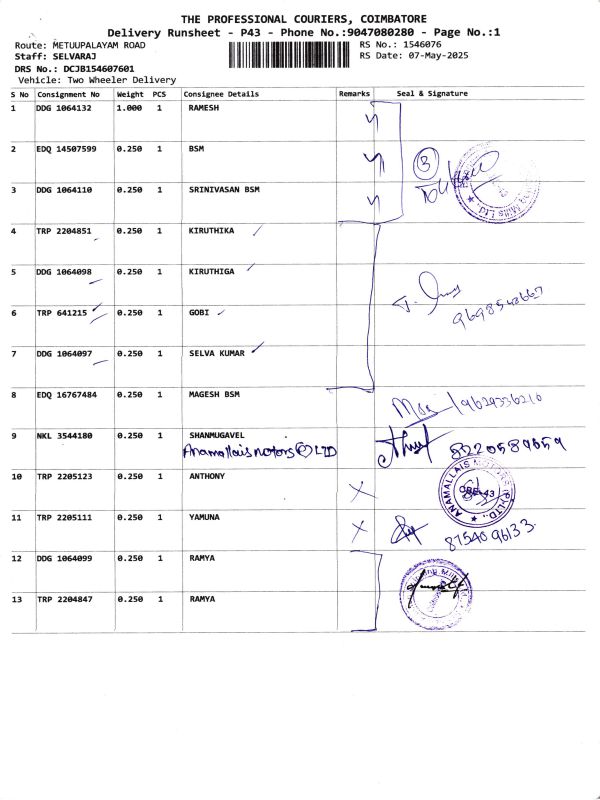 THE PROFESSIONAL COURIERS, COIMBATORE
Delivery Runsheet - P43 - Phone No.:9047080280 - Page No.:1
Route: METUUPALAYAM ROAD
RS No.: 1546076
Staff: SELVARAJ
RS Date: 07-May-2025
DRS No.: DCJB154607601
Vehicle: Two Wheeler Delivery
S No Consignment No Weight PCS Consignee Details Remarks Seal & Signature
1 DDG 1064132 1.000 1 RAMESH
2 EDQ 14507599 0.250 1 BSM
3
3 DDG 1064110 0.250 1 SRINIVASAN BSM
4 TRP 2204851 0.250 1 KIRUTHIKA
5 DDG 1064098 0.250 1 KIRUTHIGA
6 TRP 641215 0.250 1 GOBI
9698542667
7 DDG 1064097 0.250 1 SELVA KUMAR
8 EDQ 16767484 0.250 1 MAGESH BSM
9629336210
9 NKL 3544180 0.250 1 SHANMUGAVEL
Anamallais motors (P) LTD 8220589659
10 TRP 2205123 0.250 1 ANTHONY
ANAMALLAIS MOTORS (P) LTD.,
CBE-43
11 TRP 2205111 0.250 1 YAMUNA
8754096133
12 DDG 1064099 0.250 1 RAMYA
13 TRP 2204847 0.250 1 RAMYA